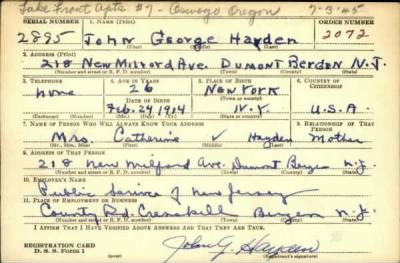 Lake Front Apts #7 - Oswego Oregon 7-3-45
SERIAL NUMBER 1. NAME (Print) ORDER NUMBER
2895 John George Hayden 2072
(First) (Middle) (Last)
2. ADDRESS (Print)
218 New Milford Ave. Dumont Bergen N.J.
(Number and street or R. F. D. number) (Town) (County) (State)
3. TELEPHONE 4. AGE IN YEARS 5. PLACE OF BIRTH 6. COUNTRY OF CITIZENSHIP
none 26 New York
DATE OF BIRTH (Town or county)
Feb. 24 1914 N.Y. U.S.A.
(Mo.) (Day) (Yr.) (State or country)
7. NAME OF PERSON WHO WILL ALWAYS KNOW YOUR ADDRESS 8. RELATIONSHIP OF THAT PERSON
Mrs. Catherine V Hayden Mother
(Mr., Mrs., Miss) (First) (Middle) (Last)
9. ADDRESS OF THAT PERSON
218 New Milford Ave. Dumont Bergen N.J.
(Number and street or R. F. D. number) (Town) (County) (State)
10. EMPLOYER'S NAME
Public Service of New Jersey
11. PLACE OF EMPLOYMENT OR BUSINESS
County Rd. Cresskill Bergen N.J.
(Number and street or R. F. D. number) (Town) (County) (State)
I AFFIRM THAT I HAVE VERIFIED ABOVE ANSWERS AND THAT THEY ARE TRUE.
REGISTRATION CARD
D. S. S. Form 1
John G. Hayden